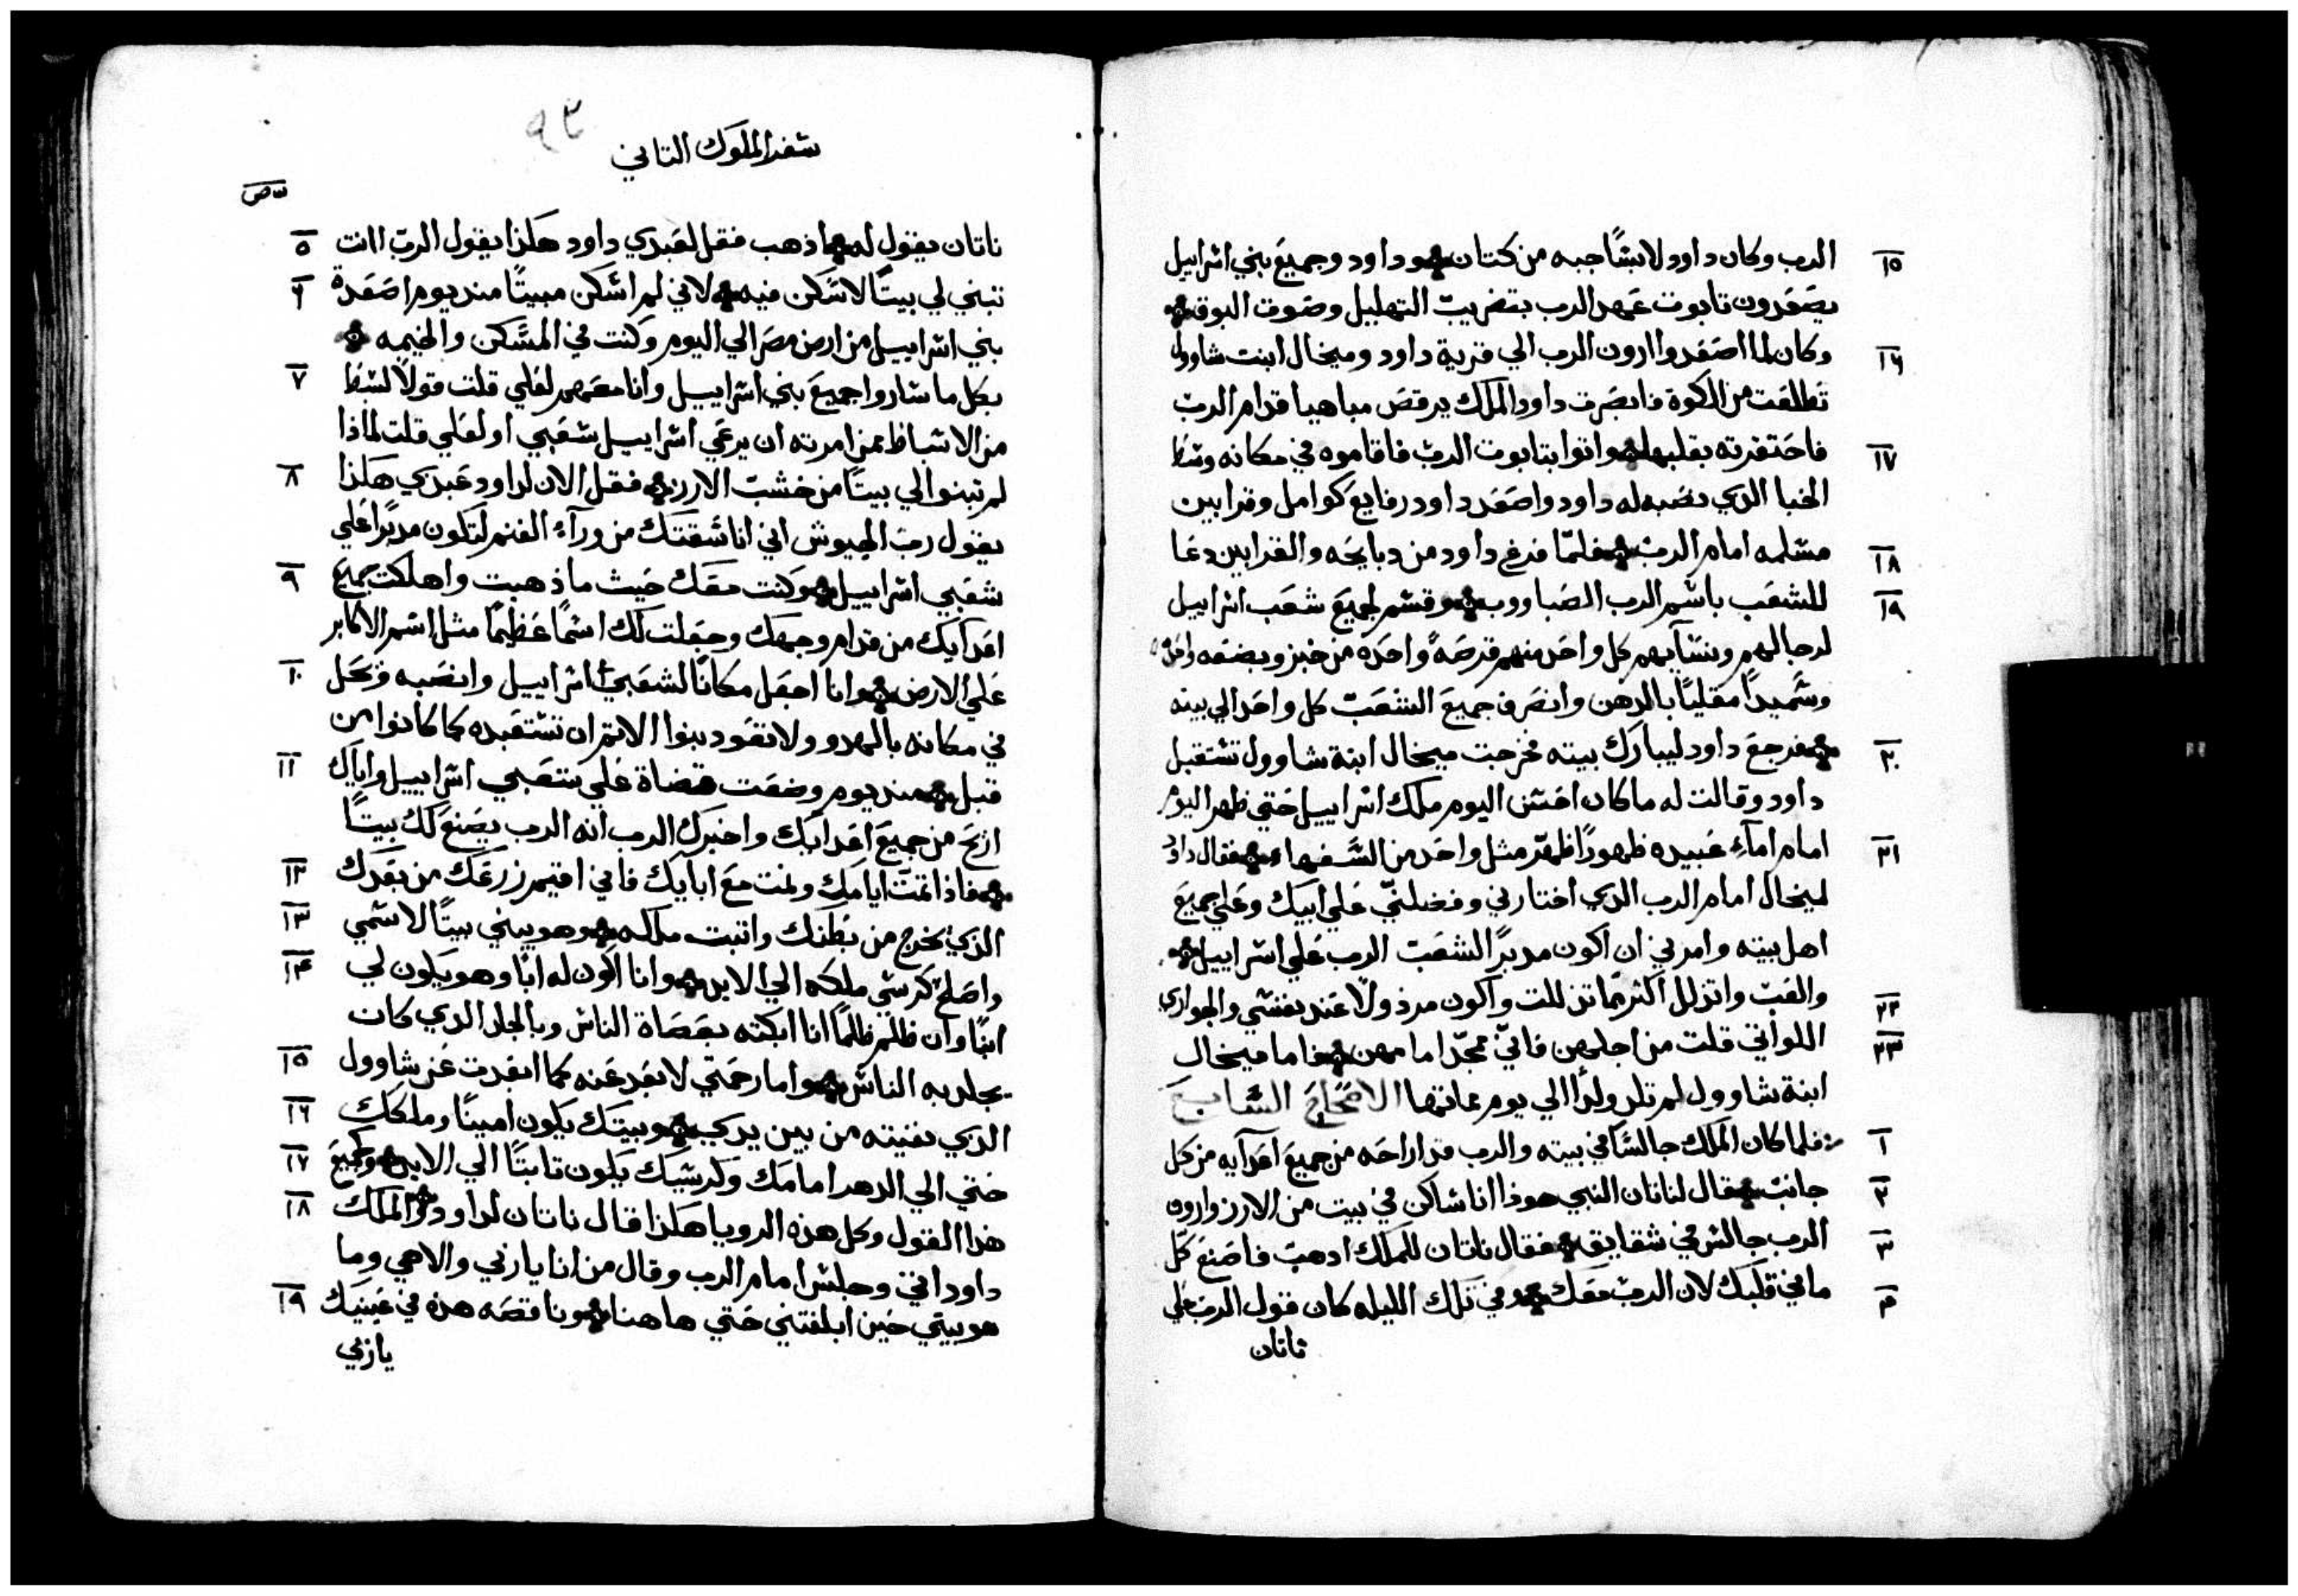 ١٥ الرب وكان داود لابسًا جبه من كتان وداود وجميع بني اسراييل
يصعدون تابوت عهد الرب بتضريب التهليل وصوت البوق
١٦ وكان لما اصعدوا ارون الرب الي قرية داود وميخال ابنت شاوول
تطلعت من الكوة فابصرت داود الملك يرقص مباهيا قدام الرب
١٧ فاحتقرته بقلبها واتوا بتابوت الرب فاقاموه في مكانه وسط
الخبا الدي نصبه له داود واصعد داود رفايع كوامل وقرابين
١٨ مسلمه امام الرب فلمّا فرغ داود من دبايحه والقرابين دعا
١٩ للشعب باسم الرب الصباووب وقسم لجميع شعب اسراييل
لرجالهم ونسآيهم كل واحد منهم قرصةً واحده من خبز وبضعه واحده
وسميدًا مقليًا بالدهن وانصرف جميع الشعب كل واحد الي بيته
٢٠ فرجع داود ليبارك بيته فخرجت ميخال ابنة شاوول تستقبل
داود وقالت له ما كان احسن اليوم ملك اسراييل حتي ظهر اليوم
٢١ امام امآء عبيده ظهورًا ظهر مثل واحد من السفهاء فقال داود
لميخال امام الرب الدي اختارني وفضلني علي ابيك وعلي جميع
اهل بيته وامرني ان اكون مدبرًا لشعب الرب علي اسراييل
٢٢ والعب واتزلل اكثر مما تزللت واكون مرذولًا عند نفسي والجواري
٢٣ اللواتي قلت من اجلهن فاني ممجّد امامهن فاما ميخال
ابنة شاوول لم تلد ولدًا الي يوم مماتها الاصحاح السابع
١ فلما كان الملك جالسًا في بيته والرب قد اراحه من جميع اعدآيه من كل
٢ جانب قال لناتان النبي هوذا انا ساكن في بيت من الارز وارون
٣ الرب جالس في شقايق فقال ناتان للملك ادهب فاصنع كل
٤ ما في قلبك لان الرب معك وفي تلك الليله كان قول الرب علي
ناتان
٩٢
سفر الملوك التاني
٥ ناتان يقول له اذهب فقل لعبدي داود هكذا يقول الرب اانت
٦ تبني لي بيتًا لاسكن فيه لاني لم اسكن مبيتًا مند يوم اصعدة
بني اسراييل من ارض مصر الي اليوم وكنت في المسكن والخيمه
٧ بكل ما ساروا جميع بني اسراييل وانا معهم لعلي قلت قولًا لسبط
من الاسباط ممن امرته ان يرعي اسراييل شعبي او لعلي قلت لماذا
٨ لم تبنوا لي بيتًا من خشب الارز فقل الان لداود عبدي هكذا
يقول رب الجيوش اني انا سقتك من ورآء الغنم لتكون مدبرًا علي
٩ شعبي اسراييل وكنت معك حيث ما ذهبت واهلكت جميع
اعدآيك من قدام وجهك وجعلت لك اسمًا عظيمًا مثل اسم الاكابر
١٠ علي الارض وانا اجعل مكانًا لشعبي اسراييل وانصبه وتحل
في مكانه بالهدو ولا تعود بنوا الاتم ان تستعبده كما كانوا من
١١ قبل مند يوم وضعت قضاة علي شعبي اسراييل واياك
اريح من جميع اعدايك واخبرك الرب انه الرب يصنع لك بيتًا
١٢ فاذا تمت ايامك ونمت مع ابايك فاني اقيم زرعك من بعدك
١٣ الذي يخرج من بطنك واتبت ملكه وهو يبني بيتًا لاسمي
١٤ واصلح كرسي ملكه الي الابد وانا اكون له ابًا وهو يكون لي
ابنًا وان ظلم ظلمًا انا ابكته بعصاة الناس وبالجلد الدي كان
١٥ يجلد به الناس واما رحمتي لا تبعد عنه كما ابعدت عن شاوول
١٦ الدي نفيته من بين يدي وبيتك يكون امينًا وملكك
١٧ حتي الي الدهر امامك وكرسيك يكون تابتًا الي الابد وكجميع
١٨ هدا القول وكل هذه الرويا هكذا قال ناتان لداود الملك
داود اتي وجلس امام الرب وقال من انا يا ربي والاهي وما
١٩ هو بيتي حين ابلغتني حتي هاهنا وناقصه هذه في عينيك
يا ربي